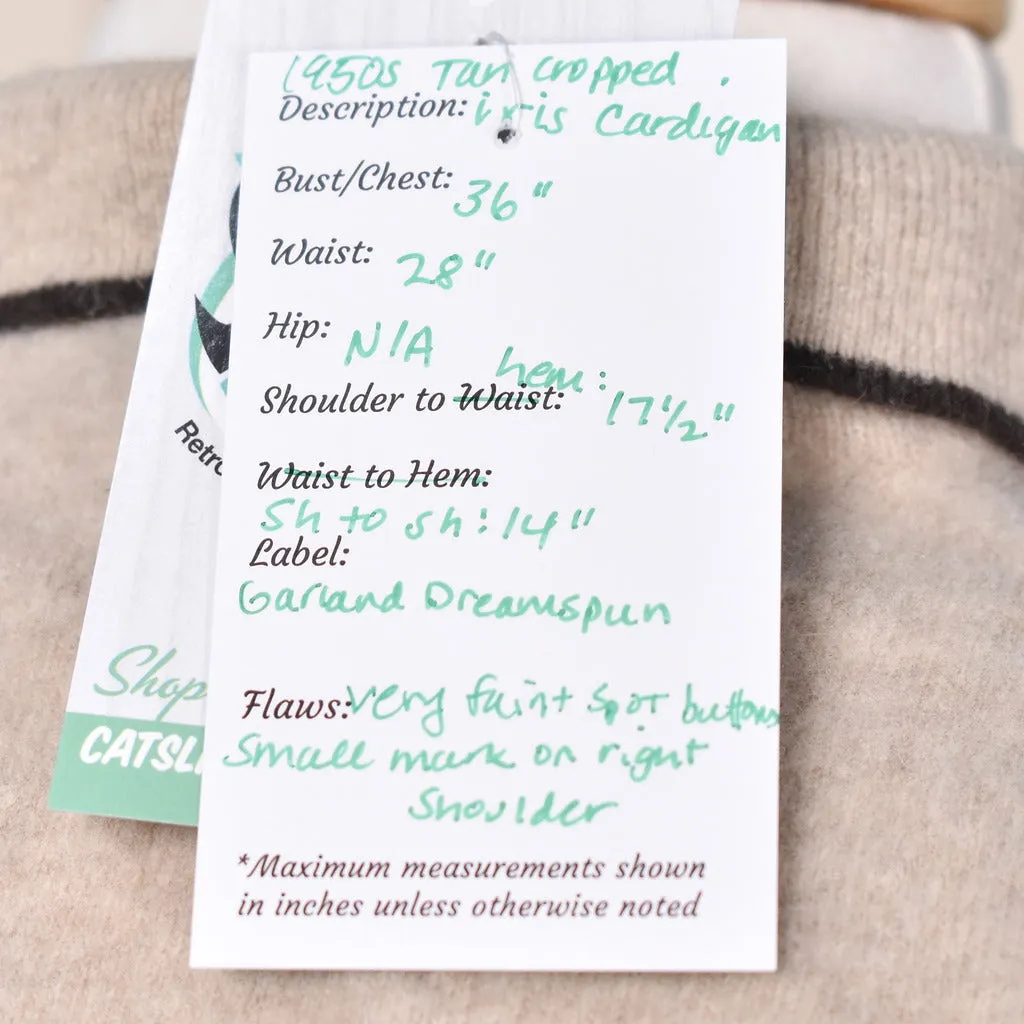 1950s Tan cropped.
Description: iris Cardigan
Bust/Chest: 36"
Waist: 28"
Hip: N/A
hem:
Shoulder to Waist: 17 1/2"
Waist to Hem:
Sh to sh: 14"
Label:
Garland Dreamspun
Flaws: Very faint spot buttons
Small mark on right
Shoulder
*Maximum measurements shown
in inches unless otherwise noted
Retro
Shop
CATSL